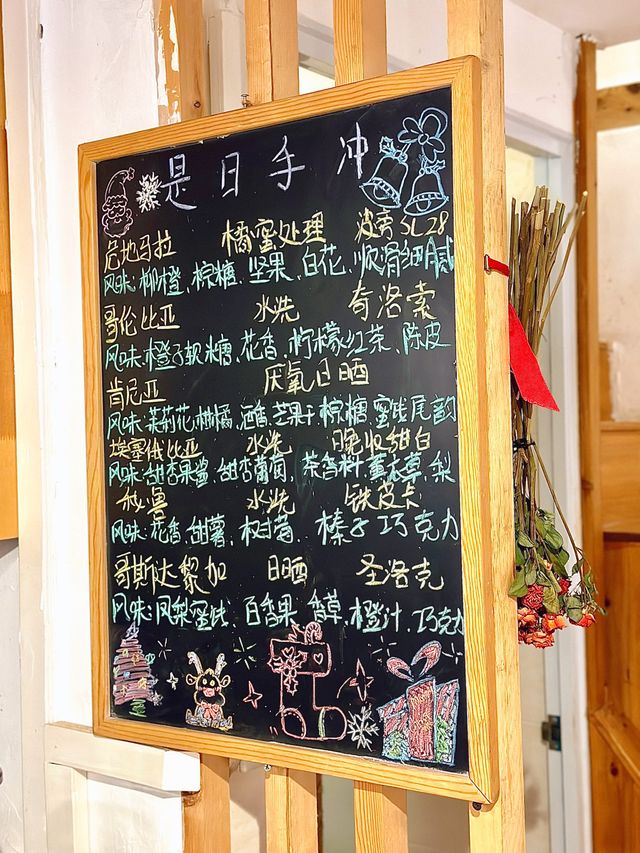 是日手冲
危地马拉 橘蜜处理 波旁SL28
风味:柳橙、棕糖、坚果、白花、顺滑细腻
哥伦比亚 水洗 奇洛索
风味:橙子软糖、花香、柠檬红茶、陈皮
肯尼亚 厌氧日晒
风味:茉莉花、柑橘、酒香、芒果干、棕糖、蜜饯尾韵
埃塞俄比亚 水洗 晚收甜白
风味:甜杏果酱、甜杏葡萄、茶香料、薰衣草、梨
秘鲁 水洗 铁皮卡
风味:花香、甜薯、树莓、榛子巧克力
哥斯达黎加 日晒 圣洛克
风味:凤梨蜜饯、百香果、香草、橙汁、巧克力